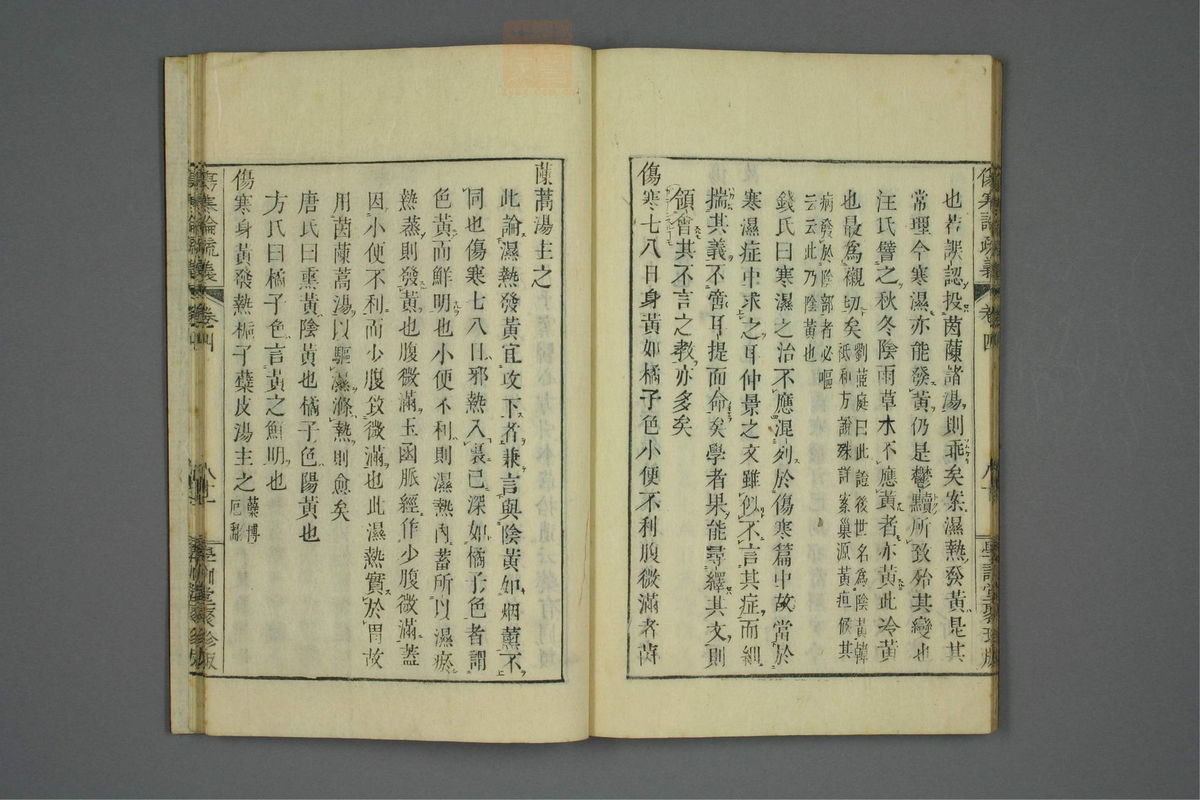 也若誤認投茵蔯諸湯則乖矣案濕熱發黃是其
常理今寒濕亦能發黃仍是鬱黷所致殆其變也
汪氏譬之秋冬陰雨草木不應黃者亦黃此冷黃
也最爲襯切矣劉茝庭曰此證後世名爲陰黃韓
祗和方論殊詳案巢源黃疸候其
病發於陰部者必嘔
云云此乃陰黃也
錢氏曰寒濕之治不應混列於傷寒篇中故當於
寒濕症中求之耳仲景之文雖似不言其症而細
揣其義不啻耳提而命矣學者果能尋繹其文則
領會其不言之教亦多矣
傷寒七八日身黃如橘子色小便不利腹微滿者茵
蔯蒿湯主之
此論濕熱發黃宜攻下者兼言與陰黃如烟薰不
同也傷寒七八日邪熱入裏已深如橘子色者謂
色黃而鮮明也小便不利則濕熱內蓄所以濕瘀
熱蒸則發黃也腹微滿玉函脈經作少腹微滿蓋
因小便不利而少腹致微滿也此濕熱實於胃故
用茵蔯蒿湯以驅濕滌熱則愈矣
唐氏曰熏黃陰黃也橘子色陽黃也
方氏曰橘子色言黃之鮮明也
傷寒身黃發熱梔子蘗皮湯主之蘗博
厄翻
傷寒論疏義
卷四
學訓堂聚珍版